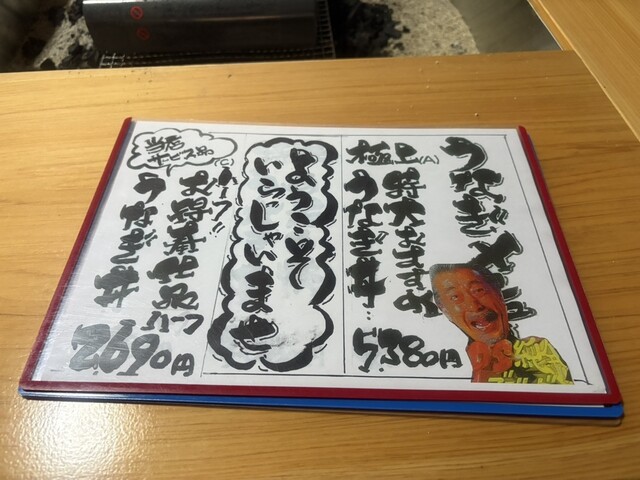 うなぎメニュー
極上(A)
特大おすすめ
うなぎ丼‥
5,380円
ようこそ
いらっしゃいませ
当店
サービス品
(C)
ハーフ!!
お得奉仕品ハーフ
うなぎ丼
2,690円